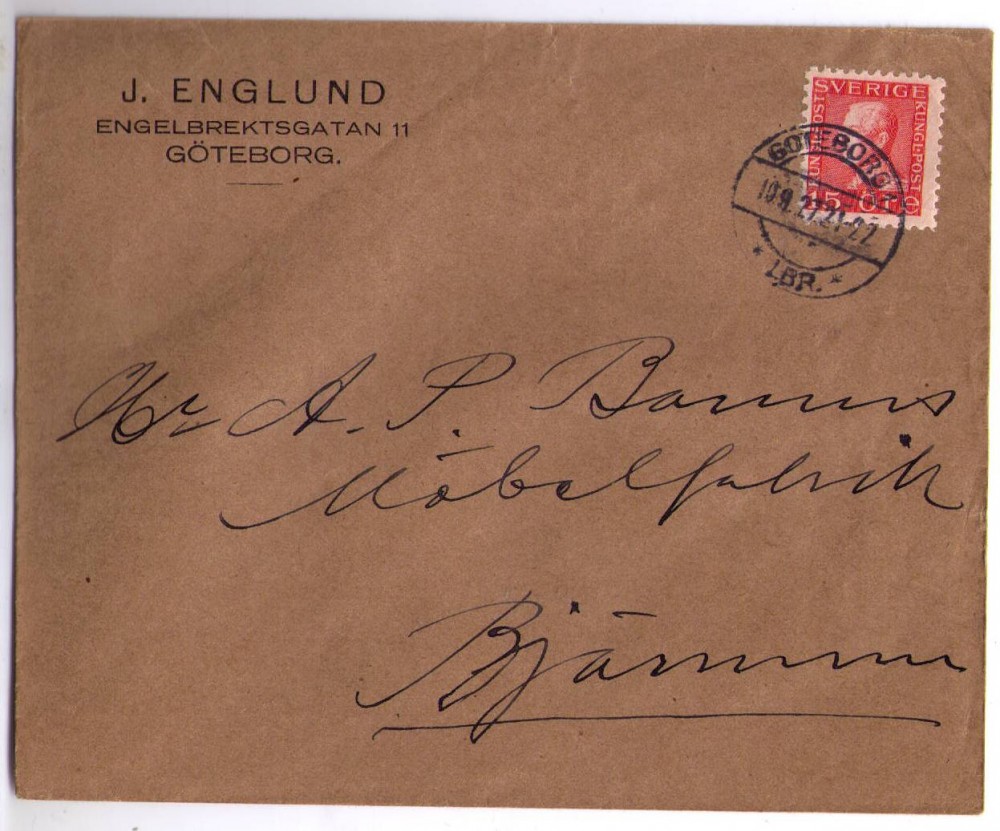 J. ENGLUND
ENGELBREKTSGATAN 11
GÖTEBORG.
SVERIGE
KUNGL·POST
KUNGL·POST
15 ÖRE
GÖTEBORG 1
10.9.27.21-22
* LBR. *
Hr A. P.
Möbelfabrik